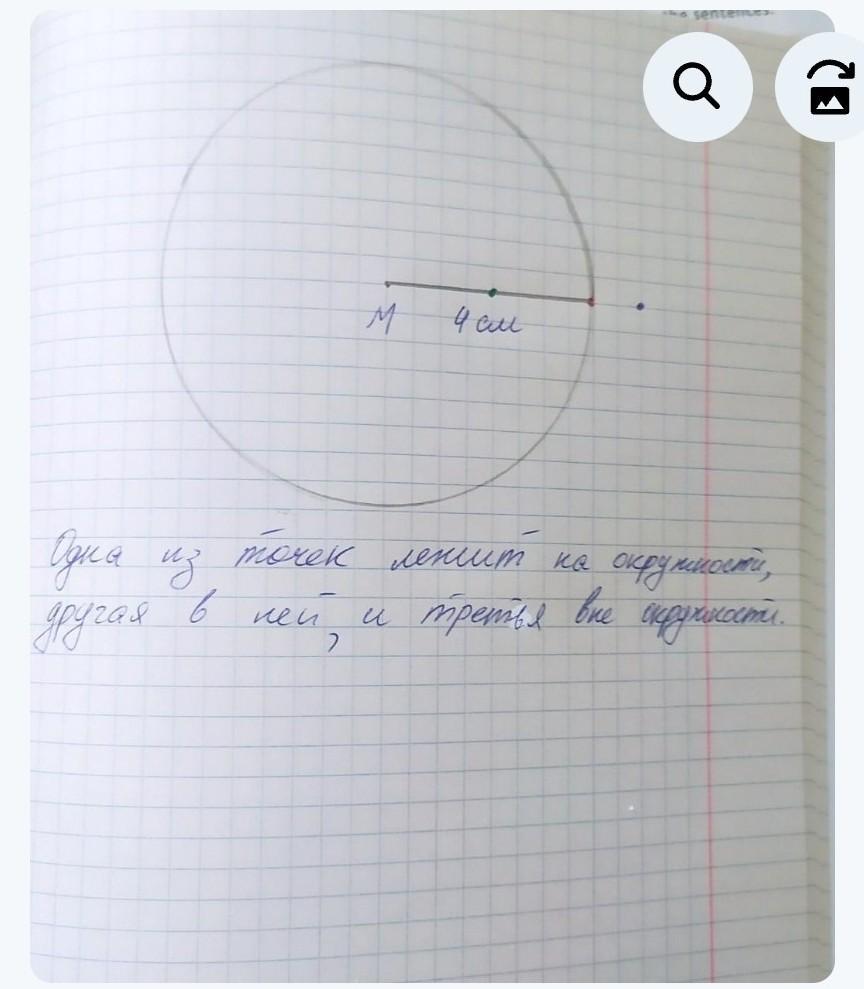 sentences.
М 4 см
Одна из точек лежит на окружности,
другая в ней, и третья вне окружности.